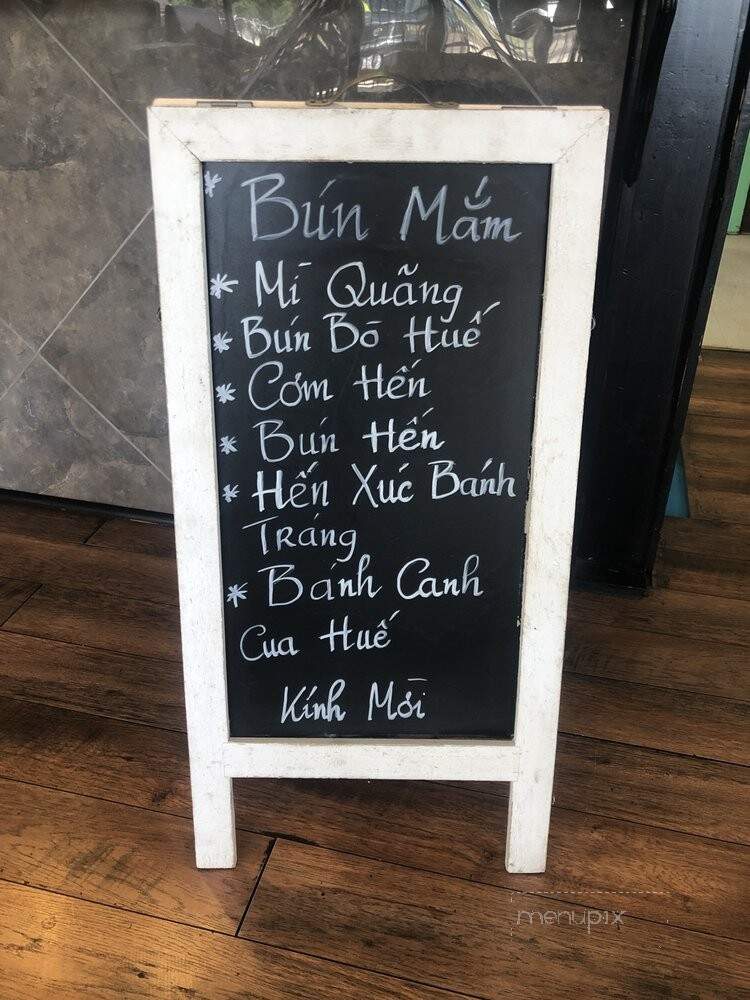 * Bún Mắm
* Mì Quãng
* Bún Bò Huế
* Cơm Hến
* Bún Hến
* Hến Xúc Bánh
Tráng
* Bánh Canh
Cua Huế
Kính Mời
menupix